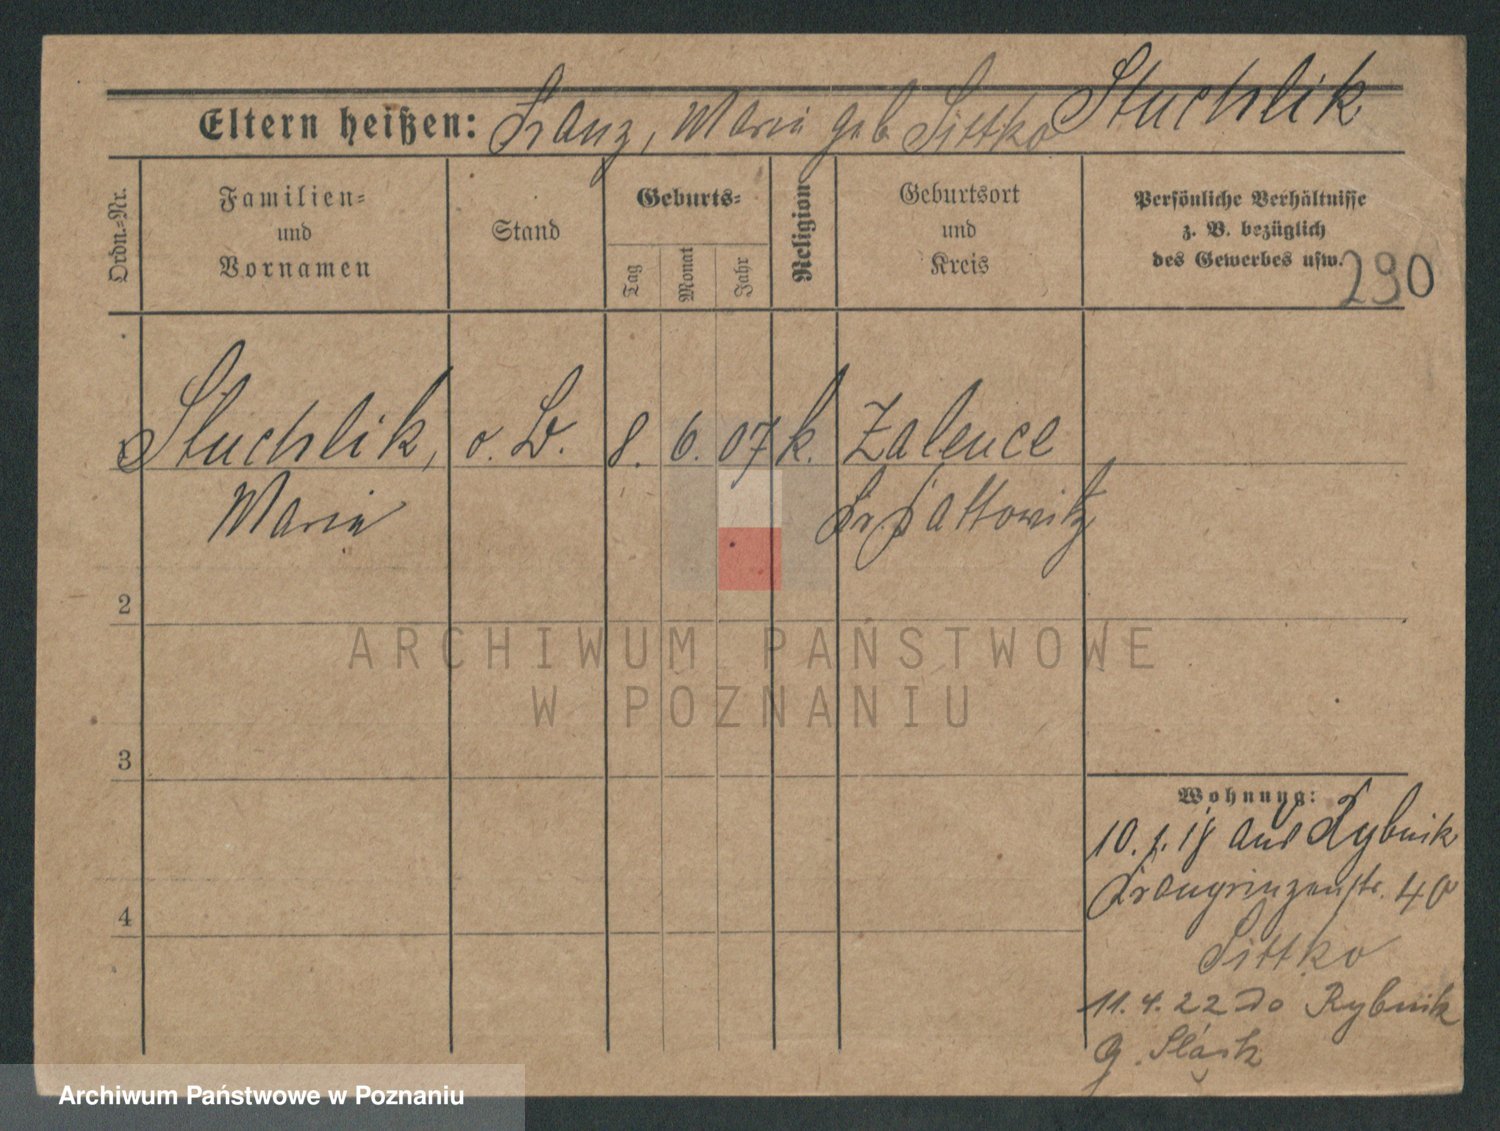 Eltern heißen: Franz, Maria geb Sittko Stuchlik
Ordn.-Nr.
Familien-
und
Vornamen
Stand
Geburts-
Tag
Monat
Jahr
Religion
Geburtsort
und
Kreis
Persönliche Verhältnisse
z. B. bezüglich
des Gewerbes usw.
290
Stuchlik, o. B. 8. 6. 07 k. Zalence
Maria Kr Kattowitz
2
ARCHIWUM PAŃSTWOWE
W POZNANIU
3
Wohnung:
10. 1. 18 aus Rybnik
Kronprinzenstr. 40
4
Sittko
11. 4. 22 do Rybnik
G. Śląsk
Archiwum Państwowe w Poznaniu